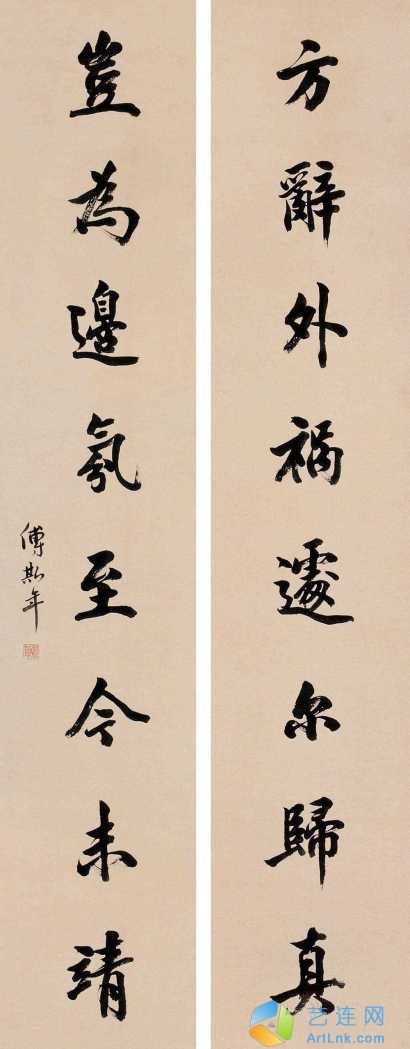 方辭外祸遽尔歸真
豈為邊氛至今未靖
傅斯年
艺连网
ArtLnk.com